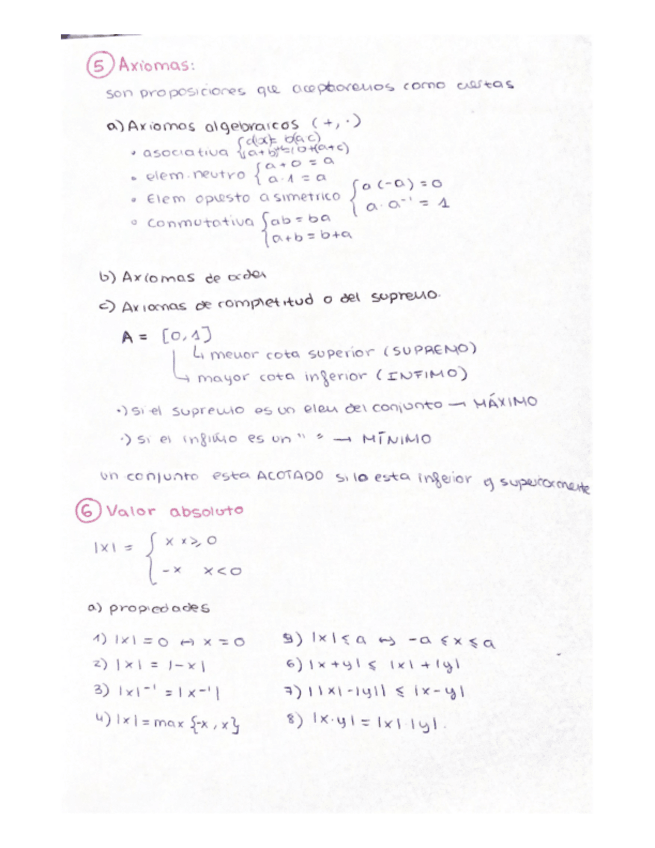 5 Axiomas:
son proposiciones que aceptaremos como ciertas
a) Axiomas algebraicos (+, ·)
• asociativa { = b(ac) (a+b)+c = b+(a+c)
• elem. neutro { a+0 = a a·1 = a
• Elem opuesto a simetrico { a(-a) = 0 a·a⁻¹ = 1
• conmutativa { ab = ba a+b = b+a
b) Axiomas de orden
c) Axiomas de completitud o del supremo.
A = [0,1]
↳ menor cota superior (SUPREMO)
↳ mayor cota inferior (INFIMO)
·) si el supremo es un elem del conjunto → MÁXIMO
·) si el infimo es un " " → MÍNIMO
un conjunto esta ACOTADO si lo esta inferior y superiormente
6 Valor absoluto
|x| = { x x ≥ 0
-x x < 0
a) propiedades
1) |x| = 0 ↔ x = 0
2) |x| = |-x|
3) |x|⁻¹ = |x⁻¹|
4) |x| = max {-x, x}
5) |x| ≤ a ↔ -a ≤ x ≤ a
6) |x+y| ≤ |x| + |y|
7) ||x| - |y|| ≤ |x-y|
8) |x·y| = |x|·|y|.